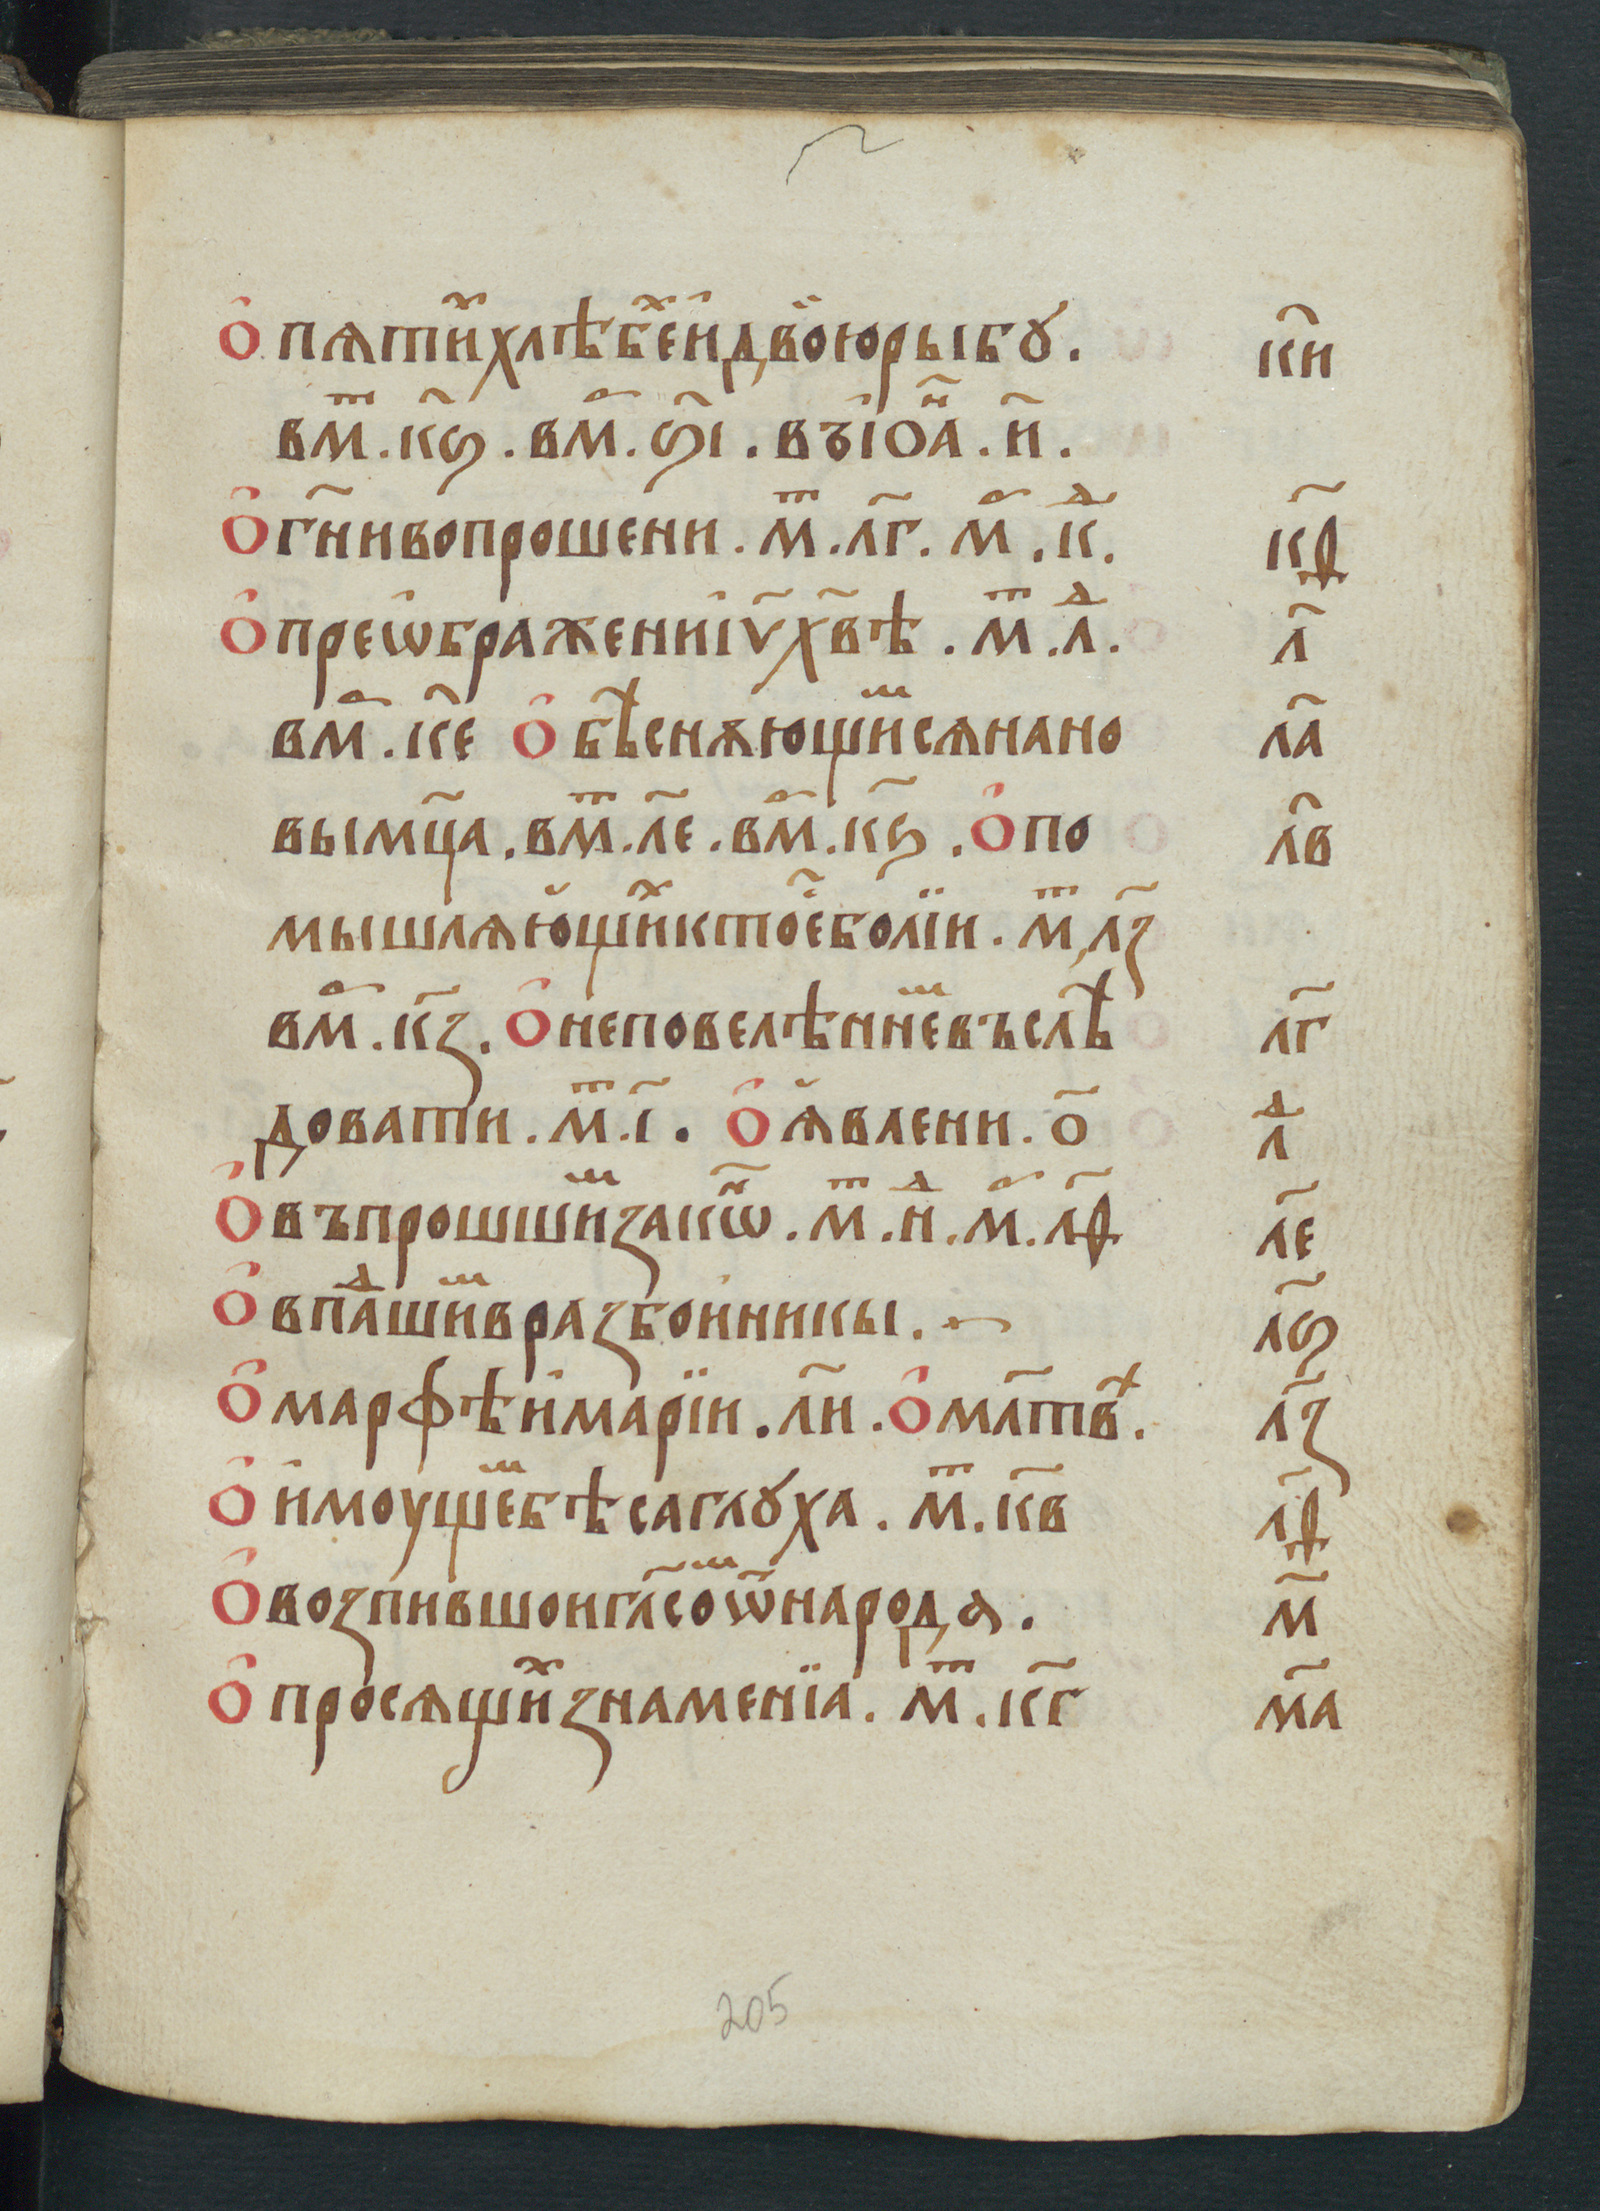 О пѧтиⷯ хлѣбеⷯ и двою рыбꙋ . к҃и
в мⷮ . к҃ѕ . в мⷬ . ѕ҃і . въ іѡⷩ҇а . и҃ .
О гн҃и вопрошени . мⷮ . л҃г . мⷬ . кⷣ . к҃ѳ
О преѡбражени і҃ѵ х҃вѣ . мⷮ . лⷣ . л҃
в мⷬ . к҃е О бѣⷭснѧющиⷨсѧ на но л҃а
вы мц҃а . в мⷮ . л҃е . в мⷬ . к҃ѕ . О по л҃в
мышлѧющиⷯ кто е҃ болїи . мⷮ , л҃з
в мⷬ . к҃з . О не повелѣннеⷨ въслѣ л҃г
довати . мⷮ . і҃ . О ꙗвлени . о҃ лⷣ
О въпрошшиⷨ закѡⷩ҇ . мⷮ . нⷣ . мⷬ . л҃ѳ л҃е
О впаⷣшиⷨ в разбоиникы . л҃ѕ
О марфѣ и марїи . л҃и . О мл҃твⷯ . л҃з
О имоущеⷨ бѣса глꙋха . мⷮ . к҃в л҃ѳ
О возпившои гл҃сѡⷨ ѿ народа . м҃
О просѧщиⷯ знаменїа . мⷮ . к҃г м҃а
205